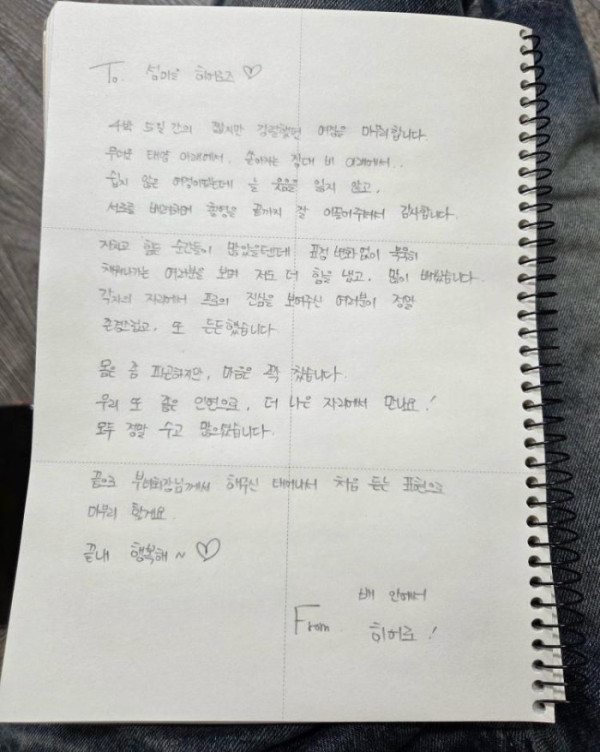 To. 섬마을 히어로즈 ♡
4박 5일 간의 짧지만 강렬했던 여정을 마무리합니다.
무더운 태양 아래에서, 쏟아지는 장대 비 아래에서..
쉽지 않은 여정이었는데 늘 웃음을 잃지 않고,
서로를 배려하며 촬영을 끝까지 잘 이끌어주셔서 감사합니다.
지치고 힘든 순간들이 많았을텐데 표정 변화 없이 묵묵히
해나가는 여러분을 보며 저도 더 힘을 내고, 많이 배웠습니다.
각자의 자리에서 프로의 진심을 보여주신 여러분이 정말
존경스럽고, 또 든든했습니다
몸은 좀 피곤하지만, 마음은 꽉 찼습니다.
우리 또 좋은 인연으로, 더 나은 자리에서 만나요!
모두 정말 수고 많으셨습니다.
끝으로 부녀회장님께서 해주신 태어나서 처음 듣는 표현으로
마무리 할게요.
끝내 행복해~ ♡
배 안에서
From 히어로!